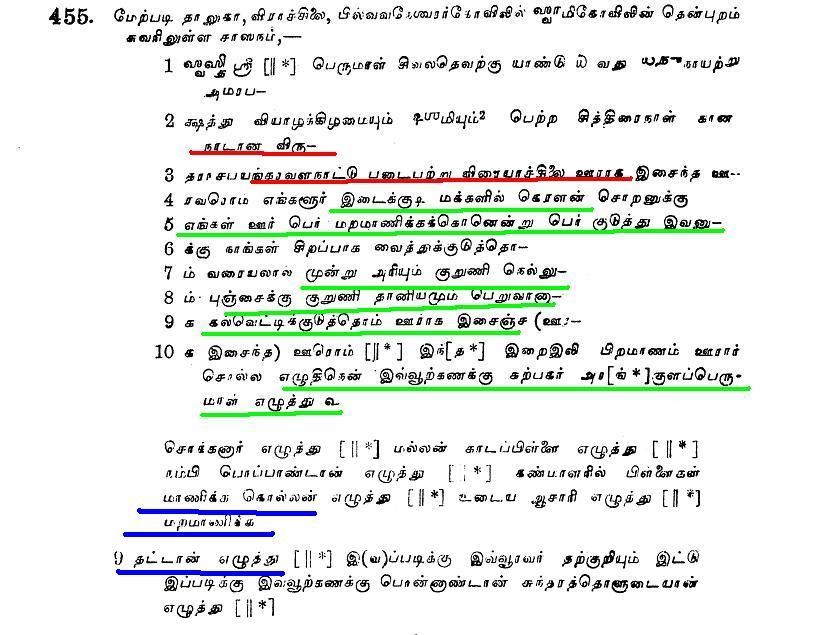 455. மேற்படி தாலுகா, விராச்சிலை, பில்வவநேஸ்வரர்கோவிலில் ஸ்வாமிகோவிலின் தென்புறம்
சுவரிலுள்ள சாஸநம்,—
1 ஸ்வஸ்திஸ்ரீ [||*] பெருமாள் சிவலதெவற்கு யாண்டு வது நாயற்று
அமரப—
2 க்ஷத்து வியாழக்கிழமையும் பெற்ற சித்திரைநாள் கான
நாடான விரு—
3 தராசபயங்கரவளநாட்டு படைபற்று விரையாச்சிலை ஊராக இசைந்த ஊ—
4 ரவரொம் எங்களூர் இடைக்குடி மக்களில் கெரளன் சொறனுக்கு
5 எங்கள் ஊர் பெர் மறமாணிக்கக்கொனென்று பெர் குடுத்து இவனு—
6 க்கு நாங்கள் சிறப்பாக வைத்துக்குடுத்தொ—
7 ம் வரையலால் முன்று அரியும் குறுணி நெல்லு—
8 ம் புஞ்சைக்கு குறுணி தானியமும் பெறுவானா—
9 க கல்வெட்டிக்குடுத்தொம் ஊராக இசைஞ்ச (ஊரா—
10 க இசைந்த) ஊரொம் [||*] இந்[த*] இறைஇலி பிறமாணம் ஊரார்
சொல்ல எழுதினென் இவ்வூற்கணக்கு கற்பகர் அர[ங்*]குளப்பெரு-
மாள் எழுத்து
சொக்கனார் எழுத்து [||*] மல்லன் காடப்பிள்ளை எழுத்து [||*]
நம்பி பொப்பாண்டான் எழுத்து [||*] கண்மாளரில் பிள்ளைகள்
மாணிக்க கொல்லன் எழுத்து [||*] உடைய ஆசாரி எழுத்து [||*]
மறமாணிக்க
9 தட்டான் எழுத்து [||*] இ(வ)ப்படிக்கு இவ்வூரவர் தற்குறியும் இட்டு
இப்படிக்கு இவ்வூற்கணக்கு பொன்னாண்டான் சுந்தரத்தொளுடையான்
எழுத்து [||*]